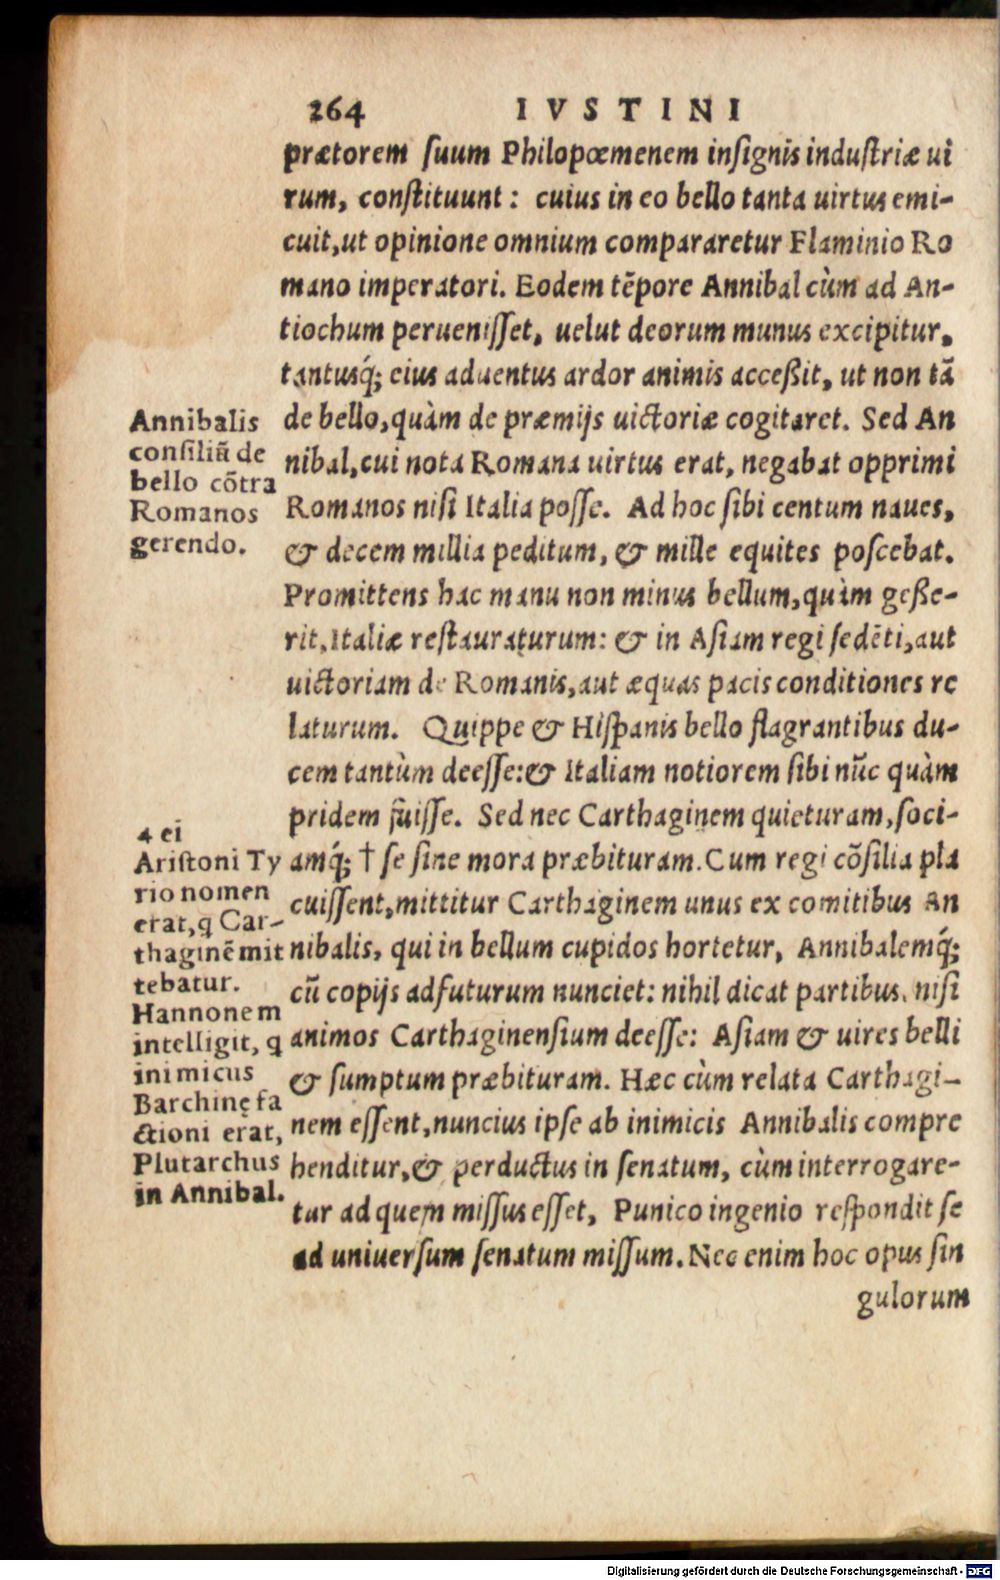 264 IVSTINI
prætorem ſuum Philopœmenem inſignis induſtriæ ui
rum, conſtituunt: cuius in eo bello tanta uirtus emi-
cuit, ut opinione omnium compararetur Flaminio Ro
mano imperatori. Eodem tẽpore Annibal cùm ad An-
tiochum perueniſſet, uelut deorum munus excipitur,
tantusq́; eius aduentus ardor animis acceßit, ut non tã
de bello, quàm de præmijs uictoriæ cogitaret. Sed An
nibal, cui nota Romana uirtus erat, negabat opprimi
Romanos niſi Italia poſſe. Ad hoc ſibi centum naues,
& decem millia peditum, & mille equites poſcebat.
Promittens hac manu non minus bellum, quàm geße-
rit, Italiæ reſtauraturum: & in Aſiam regi ſedẽti, aut
uictoriam de Romanis, aut æquas pacis conditiones re
laturum. Quippe & Hiſpanis bello flagrantibus du-
cem tantùm deeſſe: & Italiam notiorem ſibi nũc quàm
pridem fuiſſe. Sed nec Carthaginem quieturam, ſoci-
amq́; † ſe ſine mora præbituram. Cum regi cõſilia pla
cuiſſent, mittitur Carthaginem unus ex comitibus An
nibalis, qui in bellum cupidos hortetur, Annibalemq́;
cũ copijs adfuturum nunciet: nihil dicat partibus, niſi
animos Carthaginenſium deeſſe: Aſiam & uires belli
& ſumptum præbituram. Hæc cùm relata Carthagi-
nem eſſent, nuncius ipſe ab inimicis Annibalis compre
henditur, & perductus in ſenatum, cùm interrogare-
tur ad quem miſſus eſſet, Punico ingenio reſpondit ſe
ad uniuerſum ſenatum miſſum. Nec enim hoc opus ſin
gulorum
Annibalis
conſiliũ de
bello cõtra
Romanos
gerendo.
4 ei
Ariſtoni Ty
rio nomen
erat, q Car-
thaginẽ mit
tebatur.
Hannonem
intelligit, q
inimicus
Barchinę fa
ctioni erat,
Plutarchus
in Annibal.
Digitalisierung gefördert durch die Deutsche Forschungsgemeinschaft - DFG